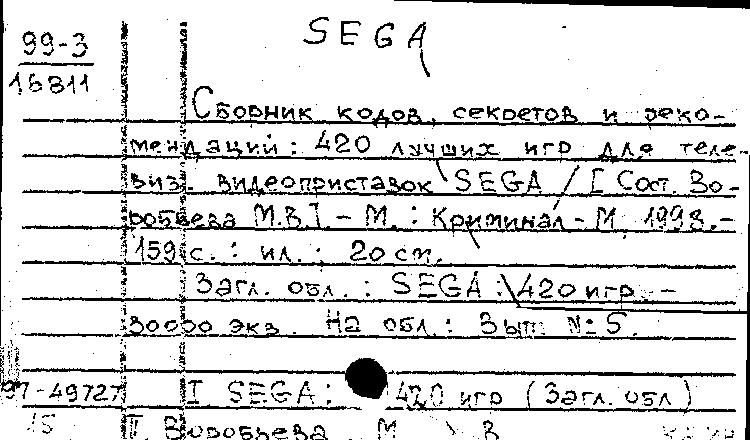 SEGA
99-3
16811
Сборник кодов, секретов и реко-
мендаций: 420 лучших игр для теле-
виз. видеоприставок SEGA / [Сост. Во-
робьева М.В.]. - М.: Криминал - М, 1998. -
159 с. : ил. ; 20 см.
Загл. обл. : SEGA : 420 игр. -
30000 экз. На обл. : Вып. № 5.
97-49727 I SEGA: 420 игр (Загл. обл)
15 II. Воробьева М В